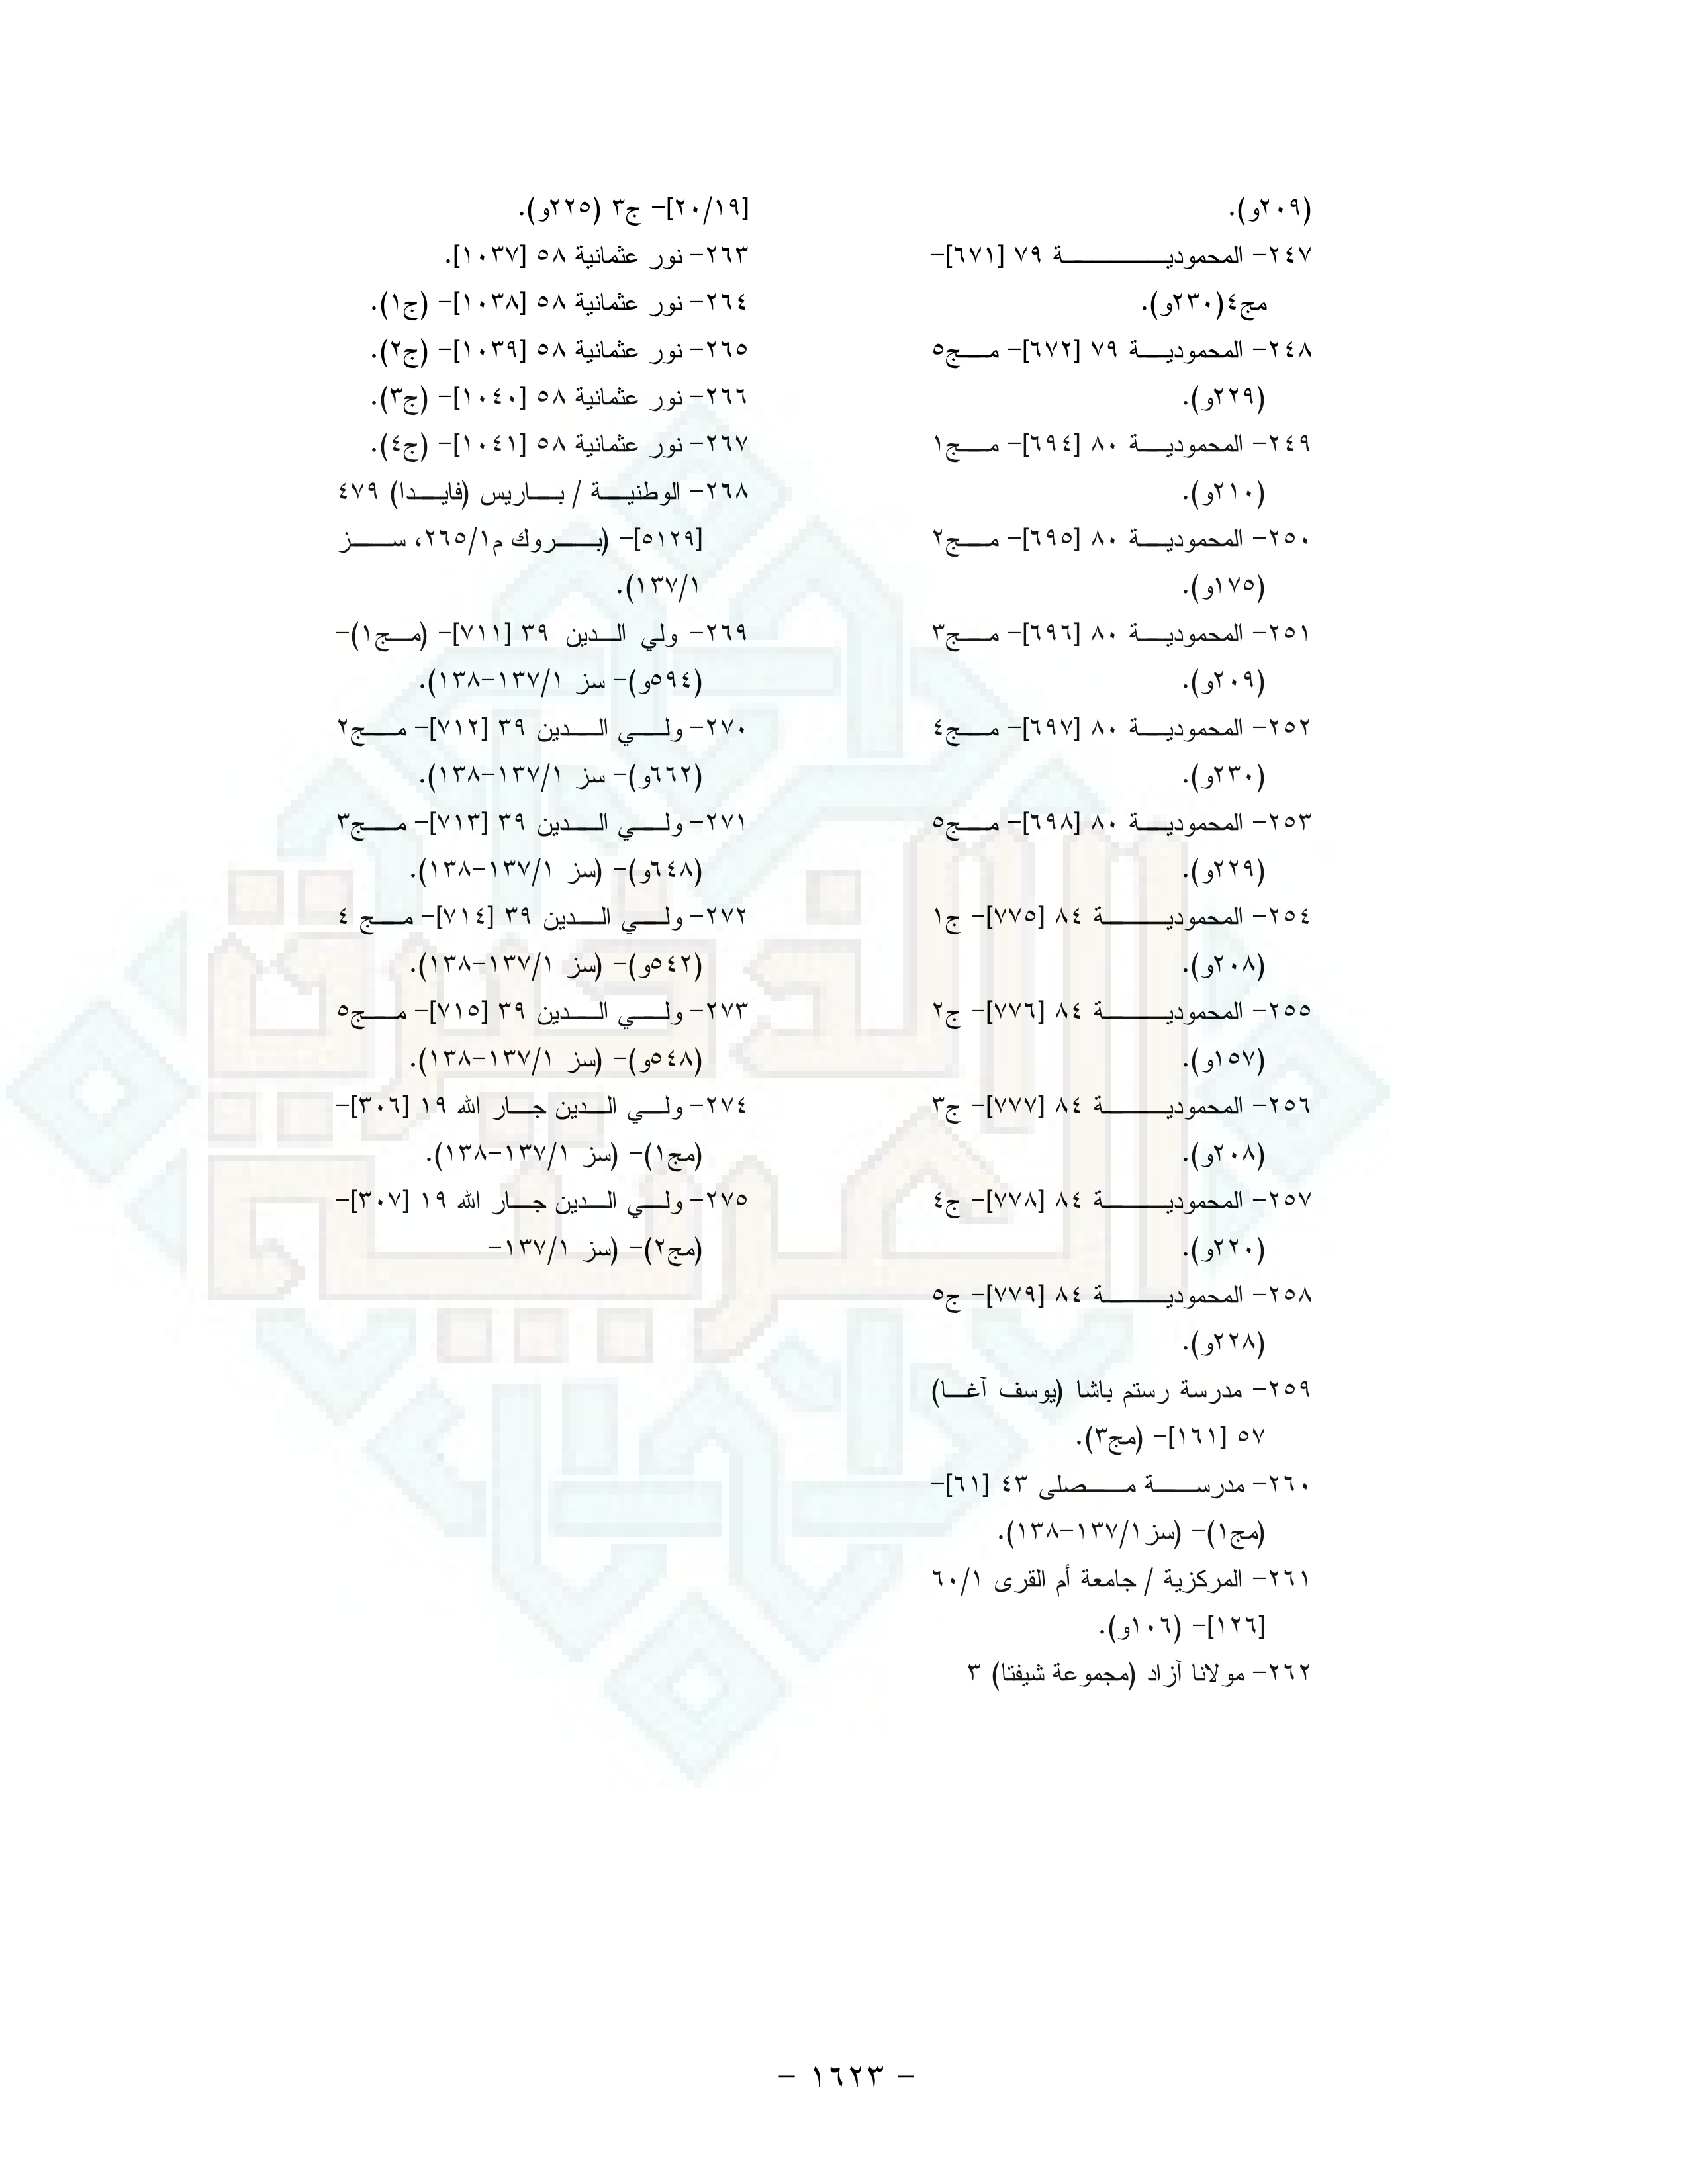 (٢٠٩و).
٢٤٧- المحمودية ٧٩ [٦٧١]-
مج٤(٢٣٠و).
٢٤٨- المحمودية ٧٩ [٦٧٢]- مج٥
(٢٢٩و).
٢٤٩- المحمودية ٨٠ [٦٩٤]- مج١
(٢١٠و).
٢٥٠- المحمودية ٨٠ [٦٩٥]- مج٢
(١٧٥و).
٢٥١- المحمودية ٨٠ [٦٩٦]- مج٣
(٢٠٩و).
٢٥٢- المحمودية ٨٠ [٦٩٧]- مج٤
(٢٣٠و).
٢٥٣- المحمودية ٨٠ [٦٩٨]- مج٥
(٢٢٩و).
٢٥٤- المحمودية ٨٤ [٧٧٥]- ج١
(٢٠٨و).
٢٥٥- المحمودية ٨٤ [٧٧٦]- ج٢
(١٥٧و).
٢٥٦- المحمودية ٨٤ [٧٧٧]- ج٣
(٢٠٨و).
٢٥٧- المحمودية ٨٤ [٧٧٨]- ج٤
(٢٢٠و).
٢٥٨- المحمودية ٨٤ [٧٧٩]- ج٥
(٢٢٨و).
٢٥٩- مدرسة رستم باشا (يوسف آغا)
٥٧ [١٦١]- (مج٣).
٢٦٠- مدرسة مصلى ٤٣ [٦١]-
(مج١)- (سز١/١٣٧-١٣٨).
٢٦١- المركزية / جامعة أم القرى ٦٠/١
[١٢٦]- (١٠٦و).
٢٦٢- مولانا آزاد (مجموعة شيفتا) ٣
[٢٠/١٩]- ج٣ (٢٢٥و).
٢٦٣- نور عثمانية ٥٨ [١٠٣٧].
٢٦٤- نور عثمانية ٥٨ [١٠٣٨]- (ج١).
٢٦٥- نور عثمانية ٥٨ [١٠٣٩]- (ج٢).
٢٦٦- نور عثمانية ٥٨ [١٠٤٠]- (ج٣).
٢٦٧- نور عثمانية ٥٨ [١٠٤١]- (ج٤).
٢٦٨- الوطنية / باريس (فايدا) ٤٧٩
[٥١٢٩]- (بروك م٢٦٥/١، سز
١٣٧/١).
٢٦٩- ولي الدين ٣٩ [٧١١]- (مج١)-
(٥٩٤و)- سز ١/١٣٧-١٣٨).
٢٧٠- ولي الدين ٣٩ [٧١٢]- مج٢
(٦٦٢و)- سز ١/١٣٧-١٣٨).
٢٧١- ولي الدين ٣٩ [٧١٣]- مج٣
(٦٤٨و)- (سز ١/١٣٧-١٣٨).
٢٧٢- ولي الدين ٣٩ [٧١٤]- مج ٤
(٥٤٢و)- (سز ١/١٣٧-١٣٨).
٢٧٣- ولي الدين ٣٩ [٧١٥]- مج٥
(٥٤٨و)- (سز ١/١٣٧-١٣٨).
٢٧٤- ولي الدين جار الله ١٩ [٣٠٦]-
(مج١)- (سز ١/١٣٧-١٣٨).
٢٧٥- ولي الدين جار الله ١٩ [٣٠٧]-
(مج٢)- (سز ١/١٣٧-
الذخيرة
العربية
- ١٦٢٣ -